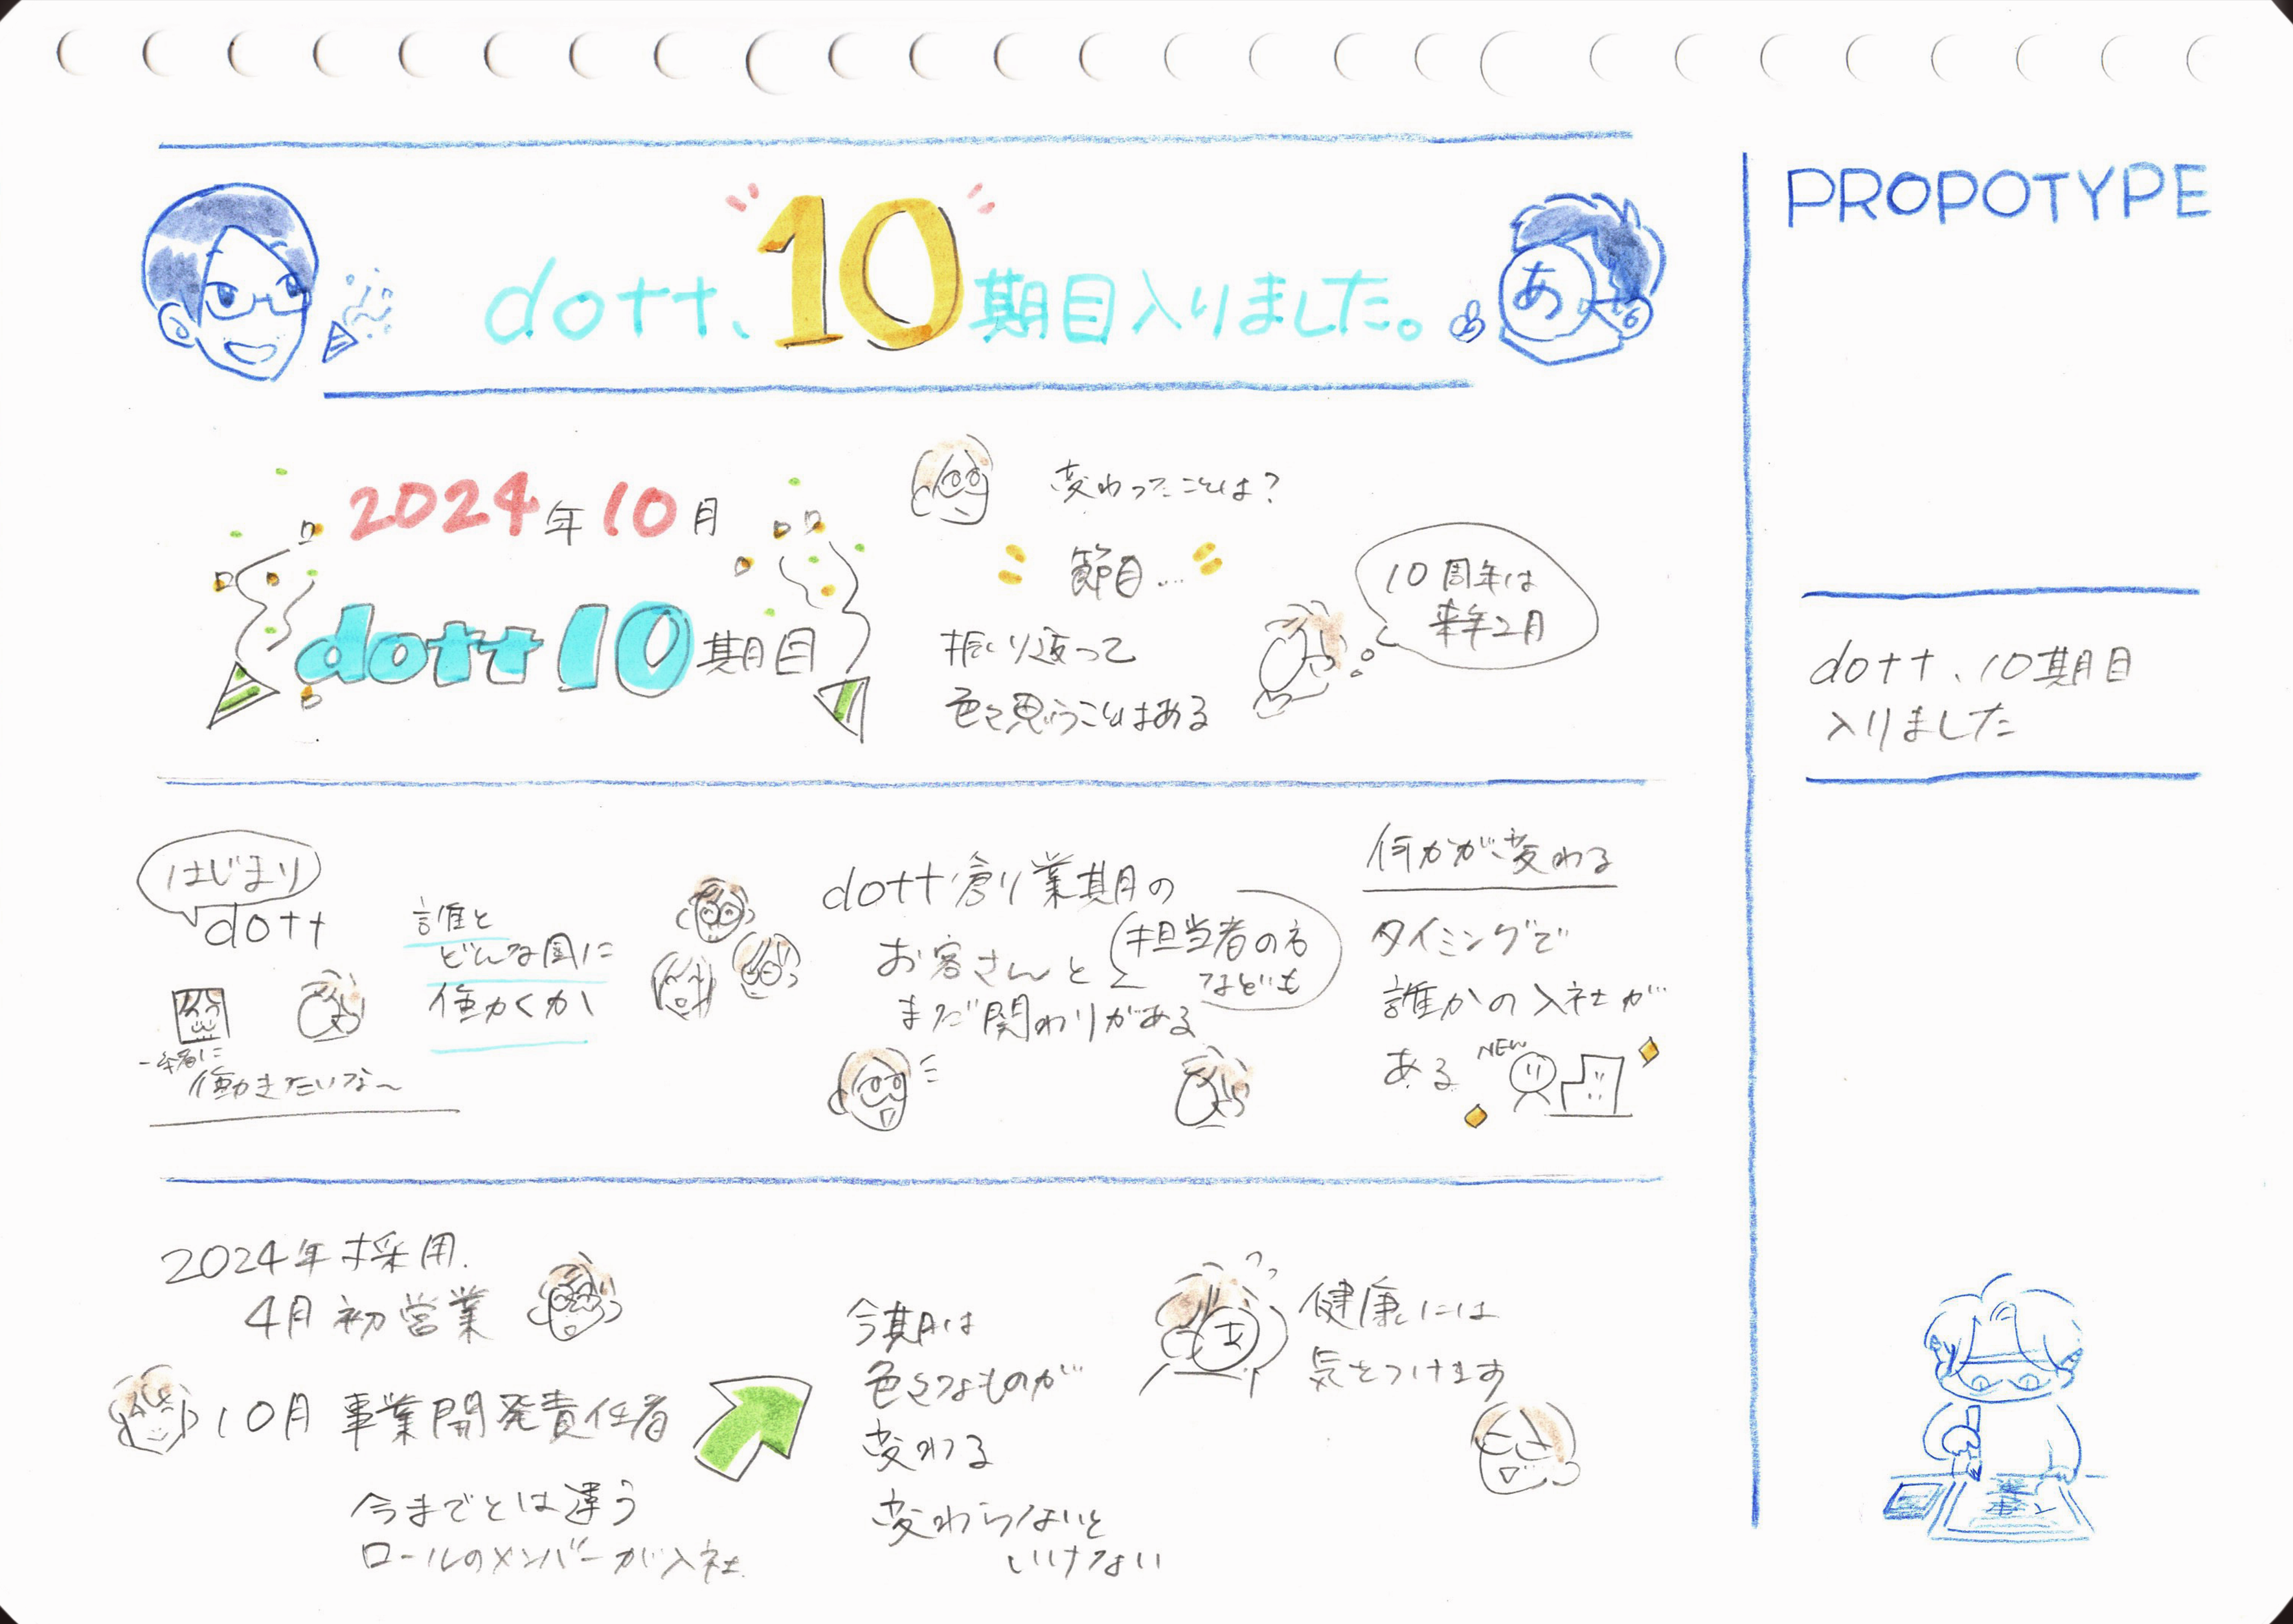 dott、10期目入りました。
あ
PROPOTYPE
2024年10月
dott 10期目
変わったことは?
節目...
振り返って
色々思うことはある
10周年は
来年2月
dott、10期目
入りました
はじまり
dott
一緒に
働きたいな〜
誰と
どんな風に
働くか
dott創業期の
お客さんと
担当者の方
なども
まだ関わりがある
何かが変わる
タイミングで
誰かの入社が
ある
NEW
2024年採用
4月初営業
10月 事業開発責任者
今までとは違う
ロールのメンバーが入社
今期は
色々なものが
変わる
変わらないと
いけない
あ
健康には
気をつけます